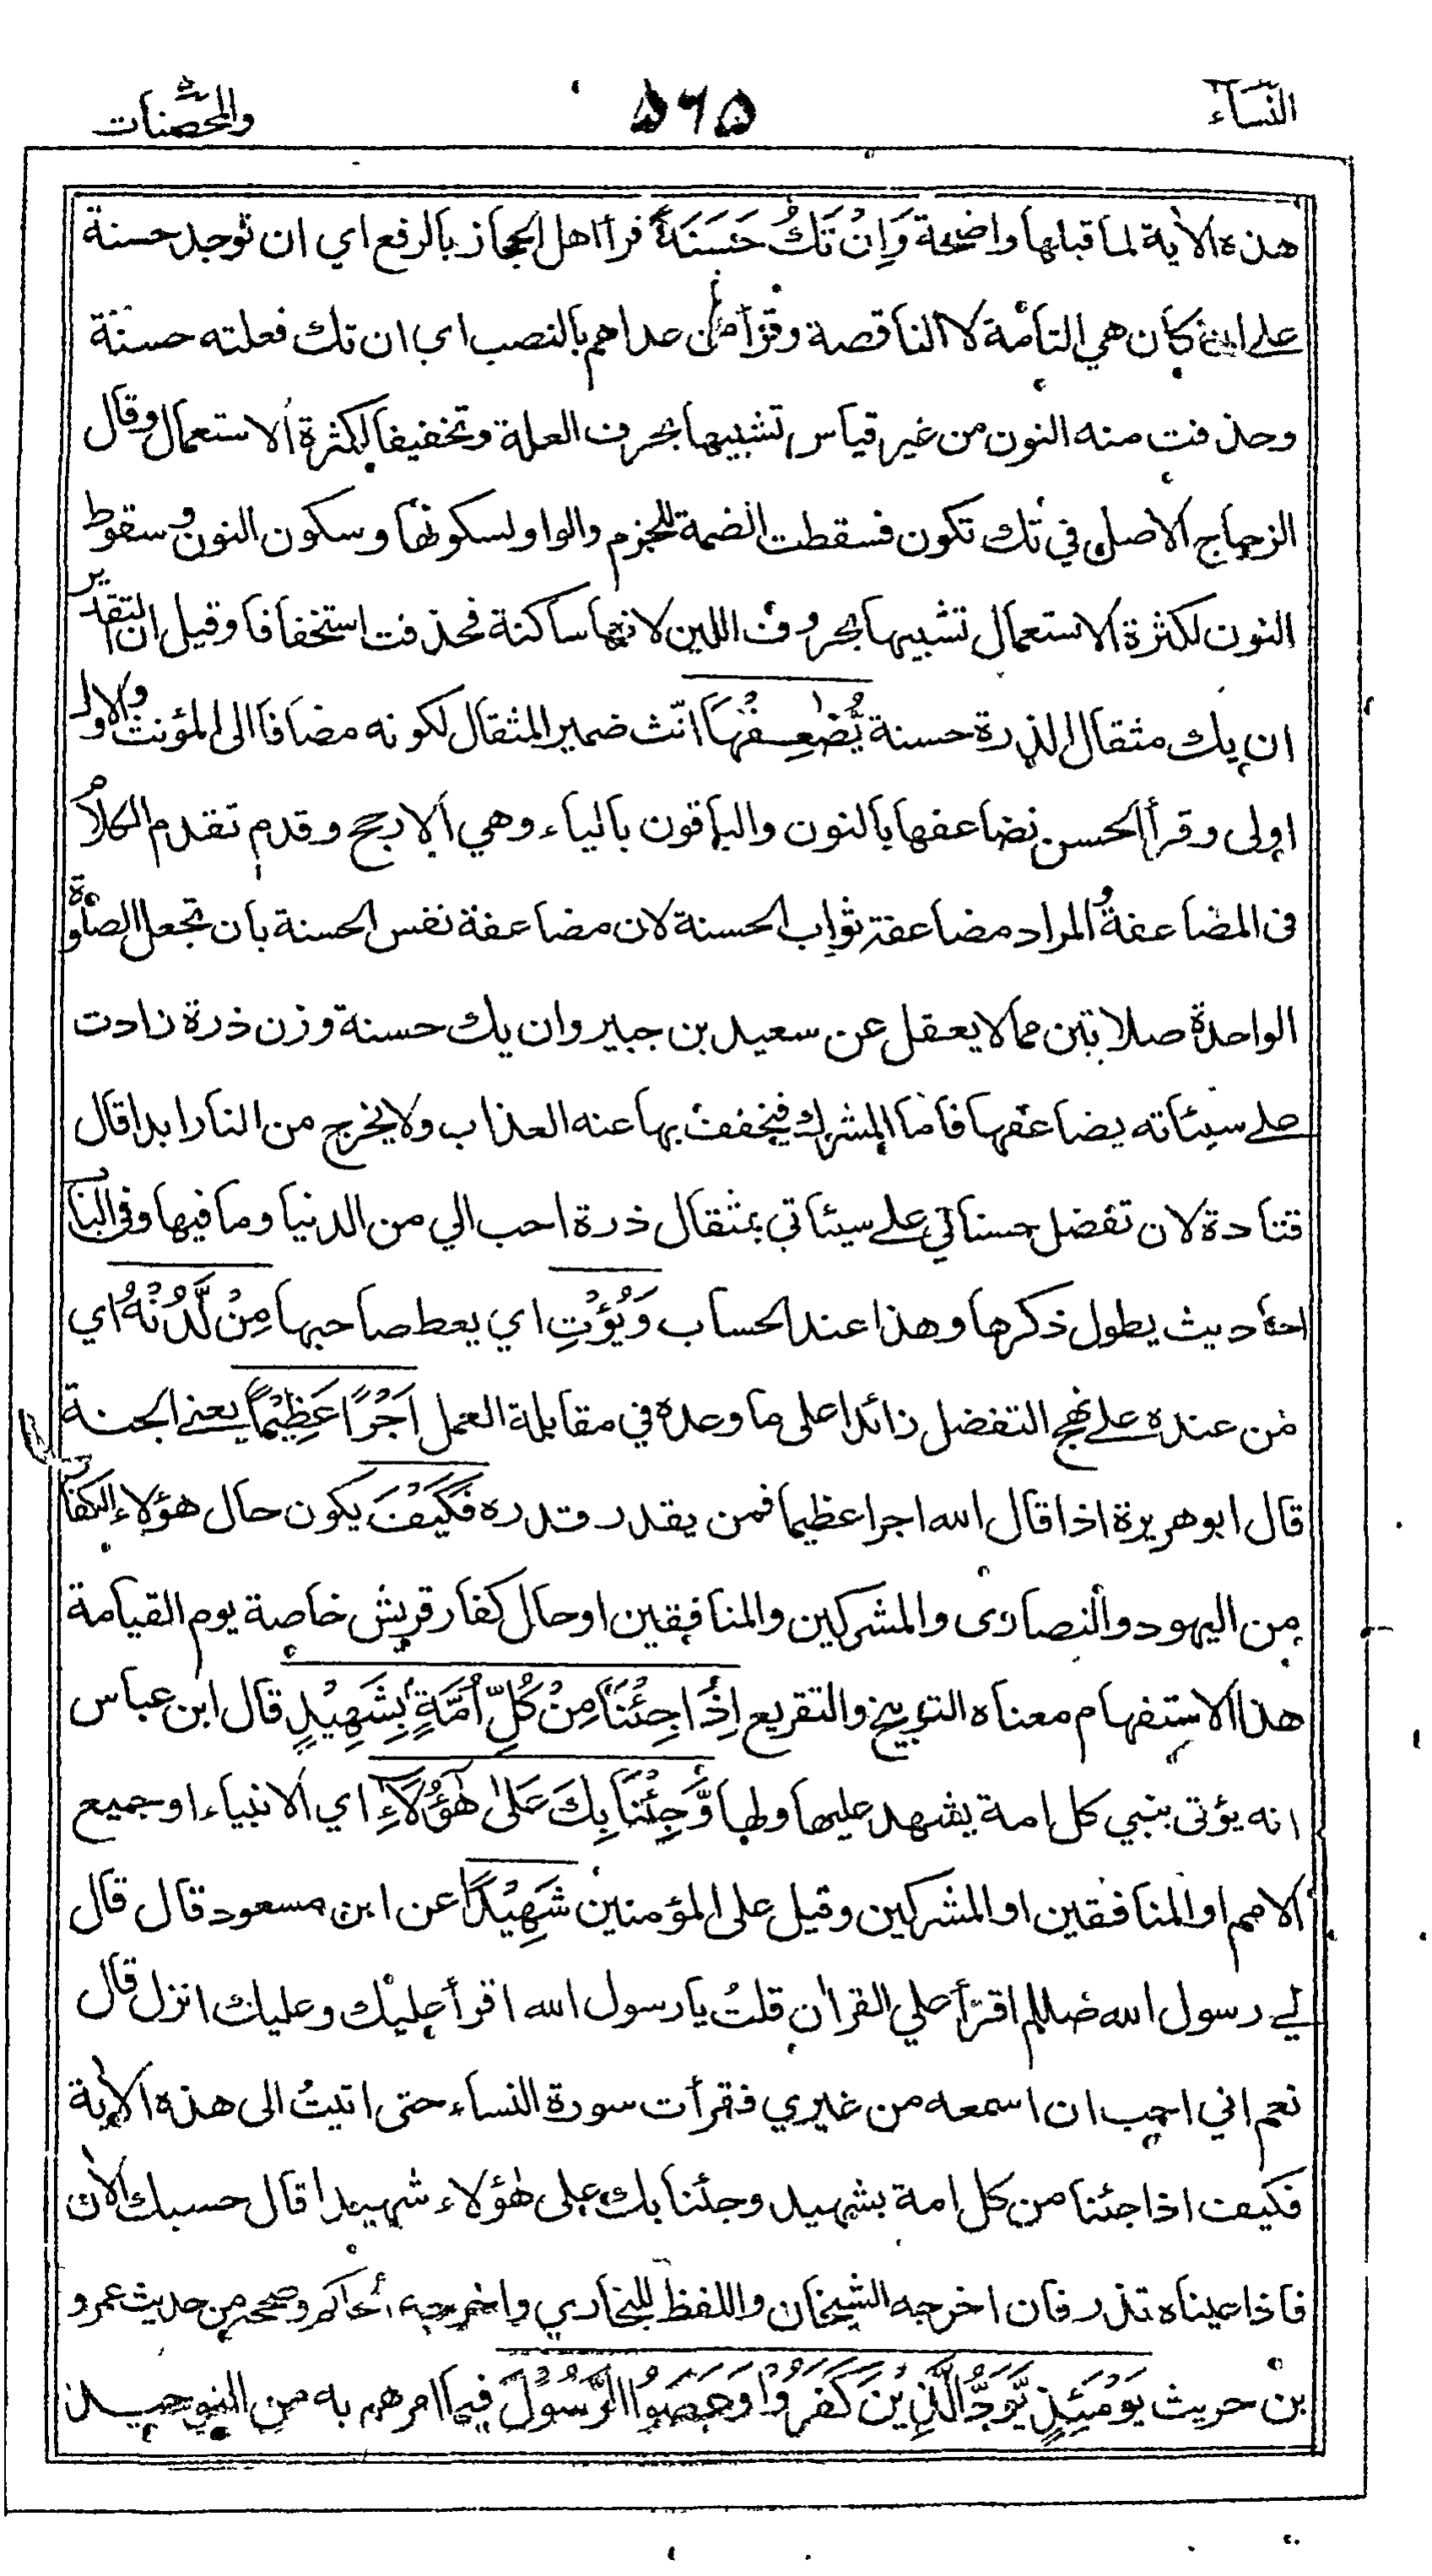 النساء ٥٦٥ والمحصنات
هذه الاٰية لما قبلها واضحة وَاِنْ تَكُ حَسَنَةً قرأ اهل الحجاز بالرفع اي ان توجد حسنة
علے ان كان هي التامة لا الناقصة وقرأ من عداهم بالنصب اي ان تك فعلته حسنة
وحذفت منه النون من غير قياس تشبيها بحرف العلة وتخفيفا لكثرة الاستعمال وقال
الزجاج الاصل في تك تكون فسقطت الضمة للجزم والواو لسكونها وسكون النون وسقوط
النون لكثرة الاستعمال تشبيها بحروف اللين لانها ساكنة فحذفت استخفافا وقيل ان التقدير
ان يك مثقال الذرة حسنة يُّضٰعِفْهَا انّث ضمير المثقال لكونه مضافا الى المؤنث والاول
اولى وقرأ الحسن نضاعفها بالنون والباقون بالياء وهي الارجح وقدم تقدم الكلام
فى المضاعفة والمراد مضاعفة ثواب الحسنة لان مضاعفة نفس الحسنة بان تجعل الصلوة
الواحدة صلاتين مما لا يعقل عن سعيد بن جبير وان يك حسنة وزن ذرة زادت
علے سيئاته يضاعفها فاما المشرك فيخفف بها عنه العذاب ولا يخرج من النار ابدا قال
قتادة لان تفضل حسناتي علے سيئاتي بمثقال ذرة احب الي من الدنيا وما فيها وفى الباب
احاديث يطول ذكرها وهذا عند الحساب وَيُؤْتِ اي يعط صاحبها مِنْ لَّدُنْهُ اي
من عنده علے نهج التفضل زائدا على ما وعده في مقابلة العمل اَجْرًا عَظِيْمًا يعنے الجنة
قال ابو هريرة اذا قال الله اجرا عظيما فمن يقدر قدره فَكَيْفَ يكون حال هؤلاء الكفار
من اليهود والنصارى والمشركين والمنافقين او حال كفار قريش خاصة يوم القيامة
هذا الاستفهام معناه التوبيخ والتقريع اِذَا جِئْنَا مِنْ كُلِّ اُمَّةٍ بِشَهِيْدٍ قال ابن عباس
انه يؤتى بنبي كل امة يشهد عليها ولها وَّجِئْنَا بِكَ عَلٰى هٰؤُلَاءِ اي الانبياء او جميع
الامم او المنافقين او المشركين وقيل على المؤمنين شَهِيْدًا عن ابن مسعود قال قال
لے رسول الله صللم اقرأ علي القراٰن قلتُ يا رسول الله اقرأ عليك وعليك انزل قال
نعم اني احب ان اسمعه من غيري فقرأت سورة النساء حتى اتيتُ الى هذه الاٰية
فكيف اذا جئنا من كل امة بشهيد وجئنا بك على هٰؤلاء شهيدا قال حسبك الاٰن
فاذا عيناه تذرفان اخرجه الشيخان واللفظ للبخاري واخرجه الحاكم وصححه من حديث عمرو
بن حريث يَوْمَئِذٍ يَّوَدُّ الَّذِيْنَ كَفَرُوْا وَعَصَوُا الرَّسُوْلَ فيما امرهم به من التوحيد